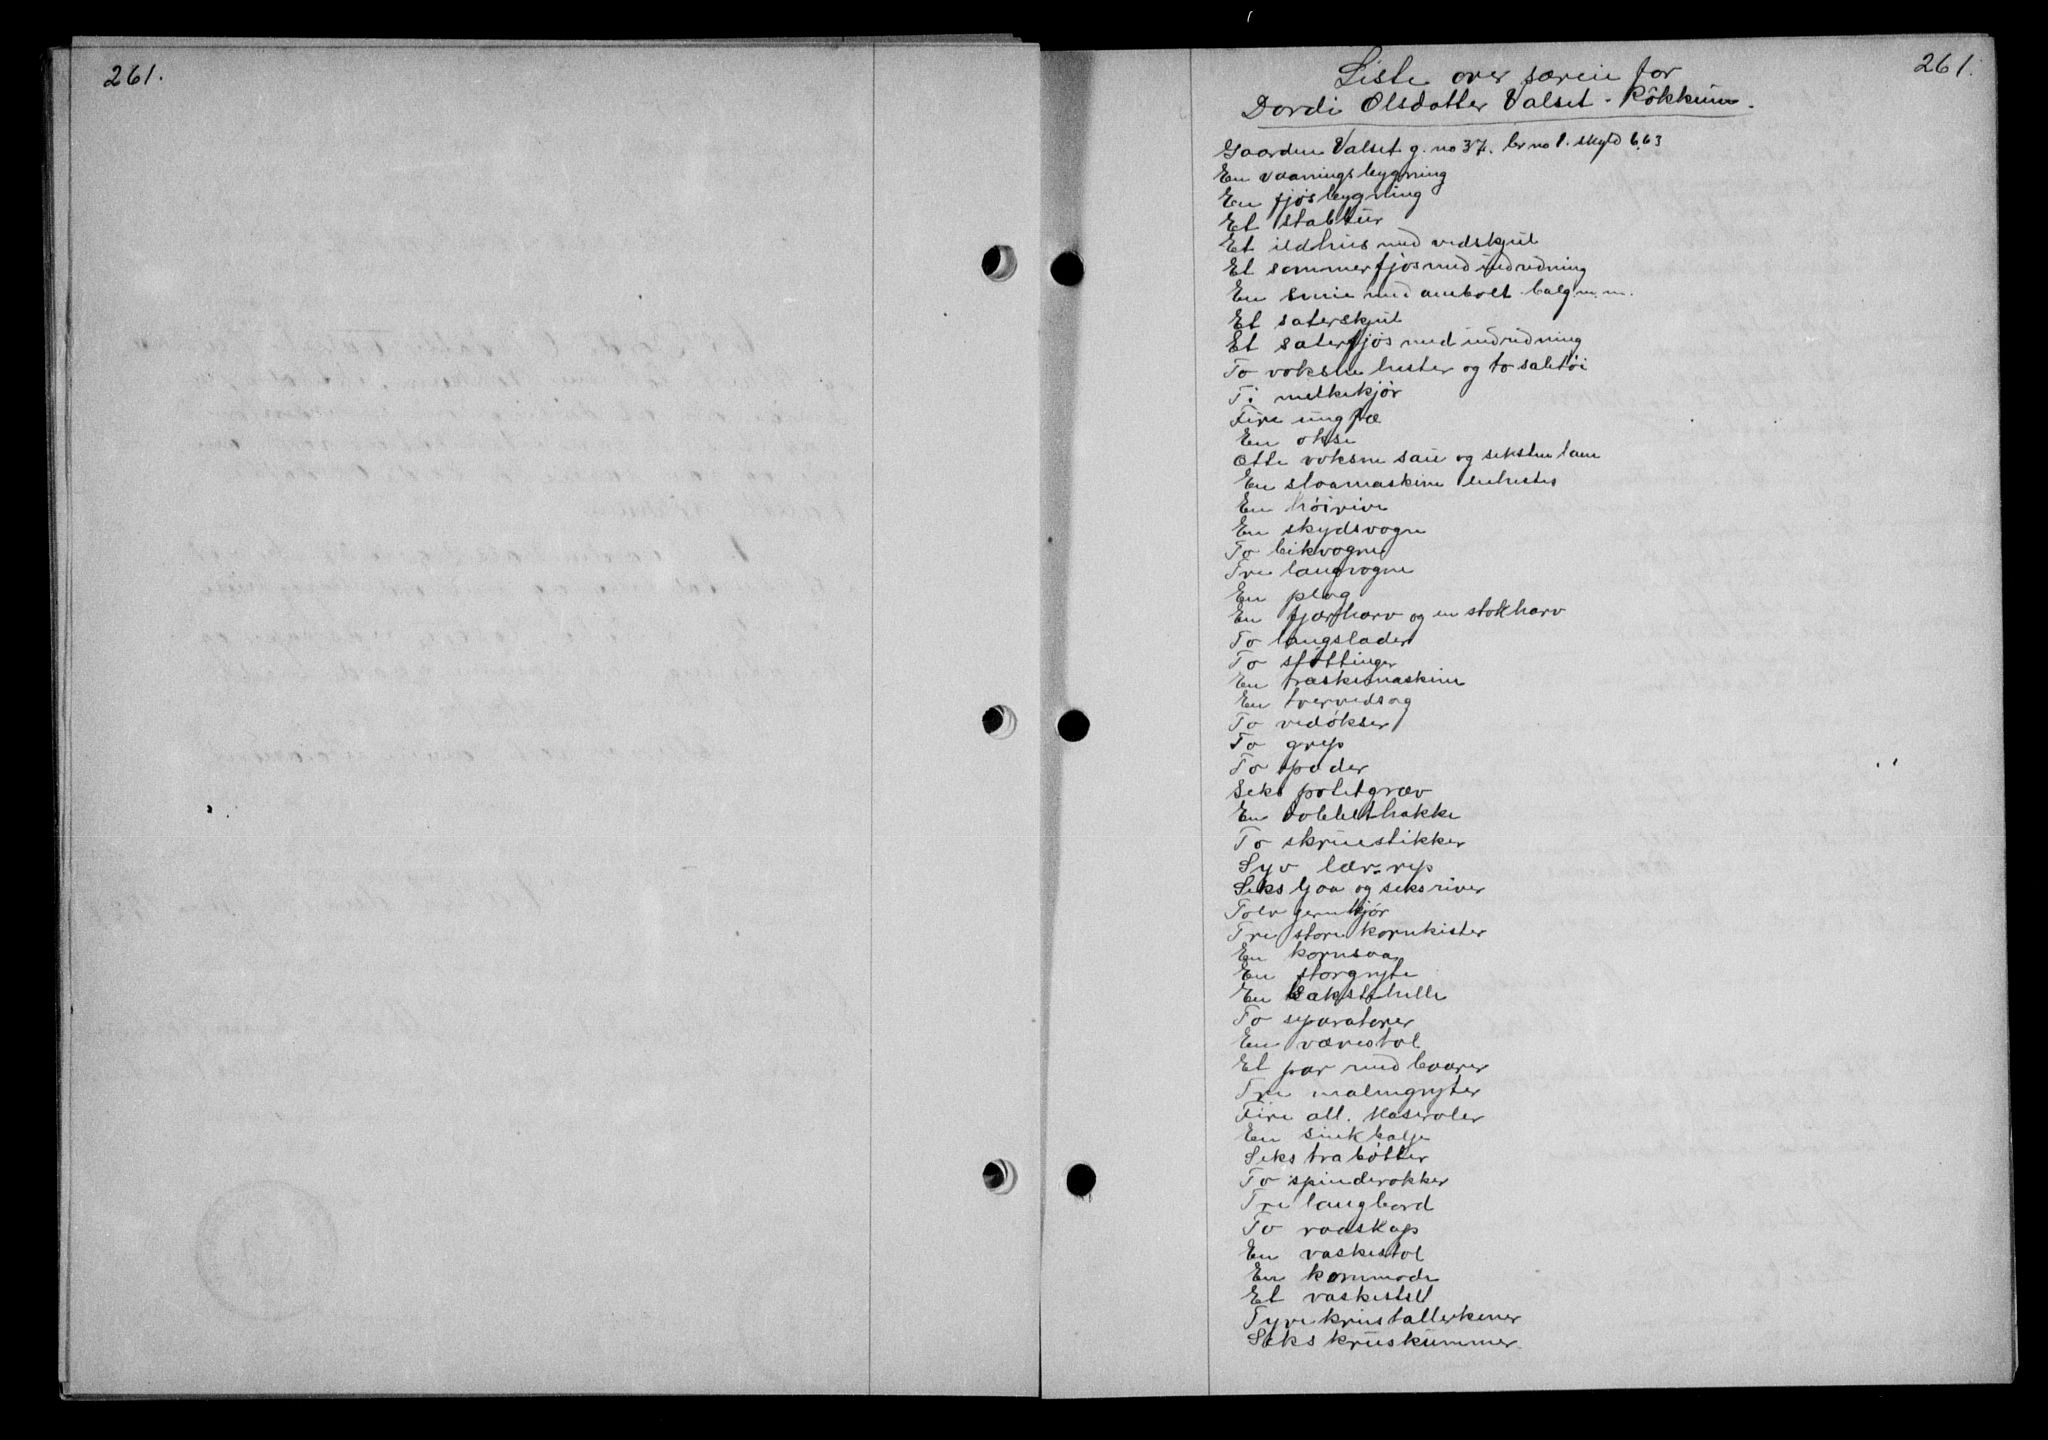 261.
261.
Liste over særeie for
Dordi Olsdatter Valset - Røkkum.
Gaarden Valset g. no 37. br no 1. skyld 6,63
En vaaningsbygning
En fjøsbygning
Et stabbur
Et ildhus med vedskjul
Et sommerfjøs med indredning
En smie med ambolt balg m.m.
Et saterskjul
Et saterfjøs med indredning
To voksne hester og to saletøi
Ti melkekjør
Fire ungfæ
En okse
Otte voksne sau og seksten lam
En slaamaskine enhestes
En høirive
En skydsvogn
To beikvogne
Tre langvogne
En plog
En fjærharv og en stokharv
To langslader
To støttinger
En træskemaskine
En tvervedsag
To vedøkser
To grep
To spader
Seks potetgræv
En dobbelthakke
To skruestikker
Syv lær-rep
Seks ljaa og seks river
Tolv jernkjør
Tre store kornkister
En kornsaa
En storgryte
En bakstehelle
To separatorer
En vævestol
Et par med baarer
Tre malmgryter
Fire all. kaseroler
En sinkbalje
Seks trabøtter
To spinderokker
Tre langbord
To raaskap
En vaskestol
En kommode
Et vaskestell
Tyve krustallerkener
Seks kruskummer